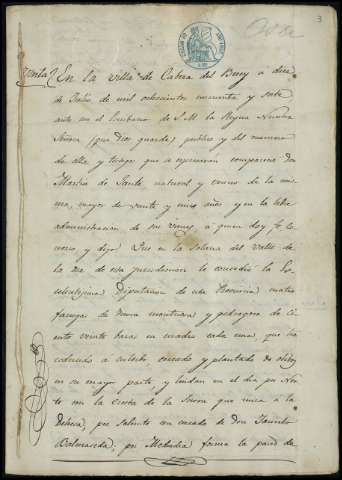 3
Venta En la villa de Cabeza del Buey a diez
de Julio de mil ochocientos cincuenta y siete
ante mi el Escribano de S. M. la Reyna Nuestra
Señora (que Dios guarde) publico y del numero
de ella y testigos que se expresarán comparecio Don
Martin de natural y vecino de la mis
ma, mayor de veinte y cinco años y en la libre
administracion de sus vienes, a quien doy fe co
nozco y dijo: Que en la solana del Valle de
la de esta jurisdiccion le concedió la Es
celentisima Diputacion de esta Provincia cuatro
fanegas de tierra montuosa y pedregosa de ci
ento veinte baras en cuadro cada una que ha
reducido a cultivo cercado y plantado de olibos
en su mayor parte, y lindan en el dia por Nor
te con la cuerda de la Sierra que mira a la
Dehesa, por Saliente con cercado de Don
Balmaseda, por Mediodia forma la pared de